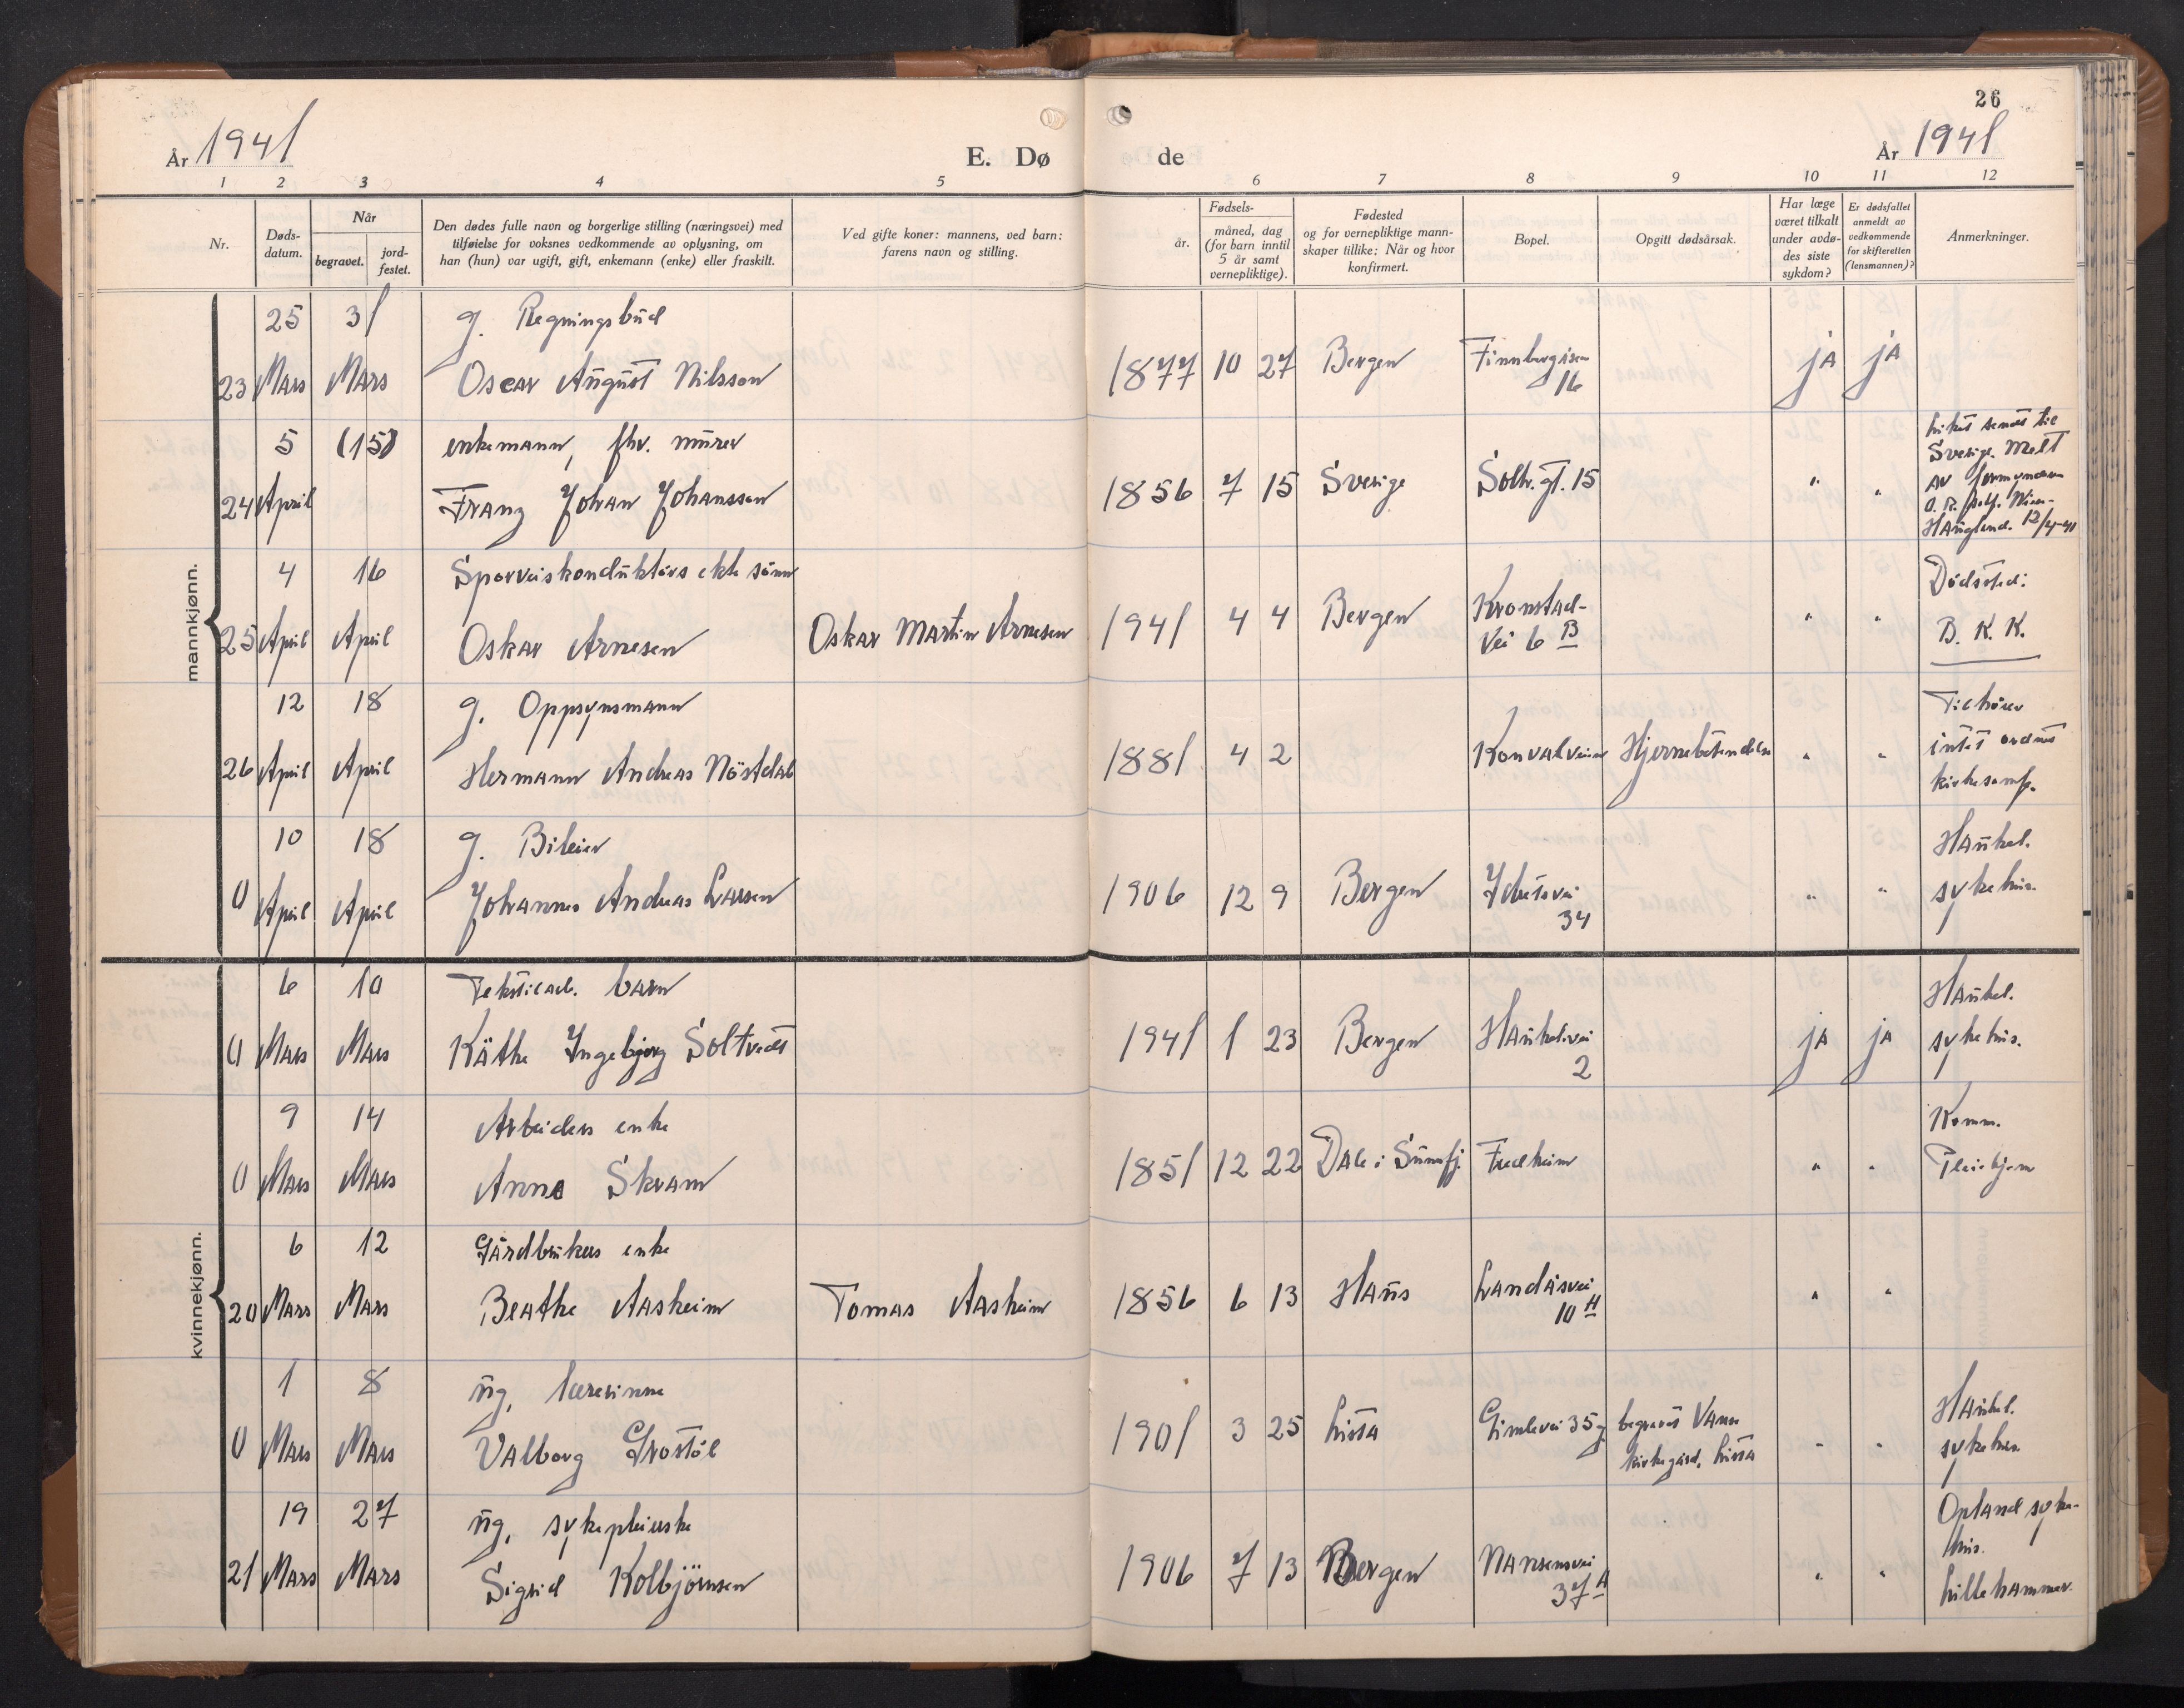 26
År 1941
E. Dø
de
År 1941
1 2 3 4 5 6 7 8 9 10 11 12
Nr.
Døds-
datum.
Når
begravet.
jord-
festet.
Den dødes fulle navn og borgerlige stilling (næringsvei) med
tilføielse for voksnes vedkommende av oplysning, om
han (hun) var ugift, gift, enkemann (enke) eller fraskilt.
Ved gifte koner: mannens, ved barn:
farens navn og stilling.
Fødsels-
år.
måned, dag
(for barn inntil
5 år samt
vernepliktige).
Fødested
og for vernepliktige mann-
skaper tillike: Når og hvor
konfirmert.
Bopel.
Opgitt dødsårsak.
Har læge
været tilkalt
under avdø-
des siste
sykdom?
Er dødsfallet
anmeldt av
vedkommende
for skifteretten
(lensmannen)?
Anmerkninger.
mannkjønn.
25 31 g. Regningsbud
23 Mars Mars Oscar August Nilsson 1877 10 27 Bergen Finnbergåsen
16
ja ja
5 (15) enkemann, fhv. murer
24 April Franz Johan Johansson 1856 7 15 Sverige Solhr. gt. 15 " "
liket sendt til
Sverige. Melt
av formymann
Hauglund. 12/4-41
4 16 Sporveiskonduktørs ekte sønn
25 April April Oskar Arnesen Oskar Martin Arnesen 1941 4 4 Bergen Kronstad-
vei 6 B
" "
Dødssted:
B. K. K.
12 18 g. Oppsynsmann
26 April April Hermann Andreas Nöstdal 1881 4 2 Konvalveien Hjernebetendelse " "
Tilhører
intet ordnet
kirkesamf.
10 18 g. Bileier
0 April April Johannes Andreas Larsen 1906 12 9 Bergen Ibsensvei
34
" "
Haukel.
sykehus.
kvinnekjønn.
6 10 Tekstilarb. barn
0 Mars Mars Käthe Ingebjørg Soltvedt 1941 1 23 Bergen Haukel.vei
2
ja ja
Haukel.
sykehus.
9 14 Arbeiders enke
0 Mars Mars Anna Skram 1851 12 22 Dale i Sunnfj. Fredheim " "
Komm.
Pleiehjem
6 12 Gårdbrukers enke
20 Mars Mars Beathe Aasheim Tomas Aasheim 1856 6 13 Haus Landåsvei
10 H
" "
1 8 ug. lærerinne
0 Mars Mars Valborg Grostøl 1901 3 25 Lista Gimlevei 35 g begravet Vanse
kirkegård, Lista
" "
Haukel.
sykehus
19 27 ug. sykepleierske
21 Mars Mars Sigrid Kolbjörnsen 1906 7 13 Bergen Nansensvei
37 A
" "
Opland syke-
hus.
Lillehammer.